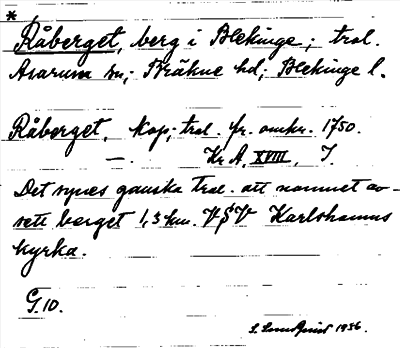 *
Råberget, berg i Blekinge; trol.
Asarum sn; Bräkne hd; Blekinge l.
Råberget, Kop; trol. fr. omkr. 1750.
—. Kr A, XVIII, I.
Det synes ganska trol. att namnet av-
sett berget 1,3 km. VSV Karlshamns
kyrka.
G.10.
S. Lundqvist 1936.